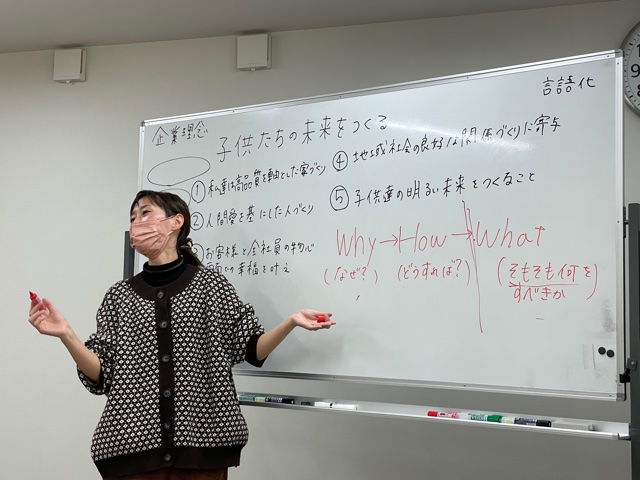 言語化
企業理念
子供たちの未来をつくる
① 私達は高品質を軸とした家づくり
② 人間愛を基にした人づくり
③ お客様と全社員の物心
両面での幸福を叶え
④ 地域社会の良好な関係づくりに寄与
⑤ 子供達の明るい未来をつくること
Why→How→What
(なぜ?) (どうすれば?) (そもそも何を
すべきか)